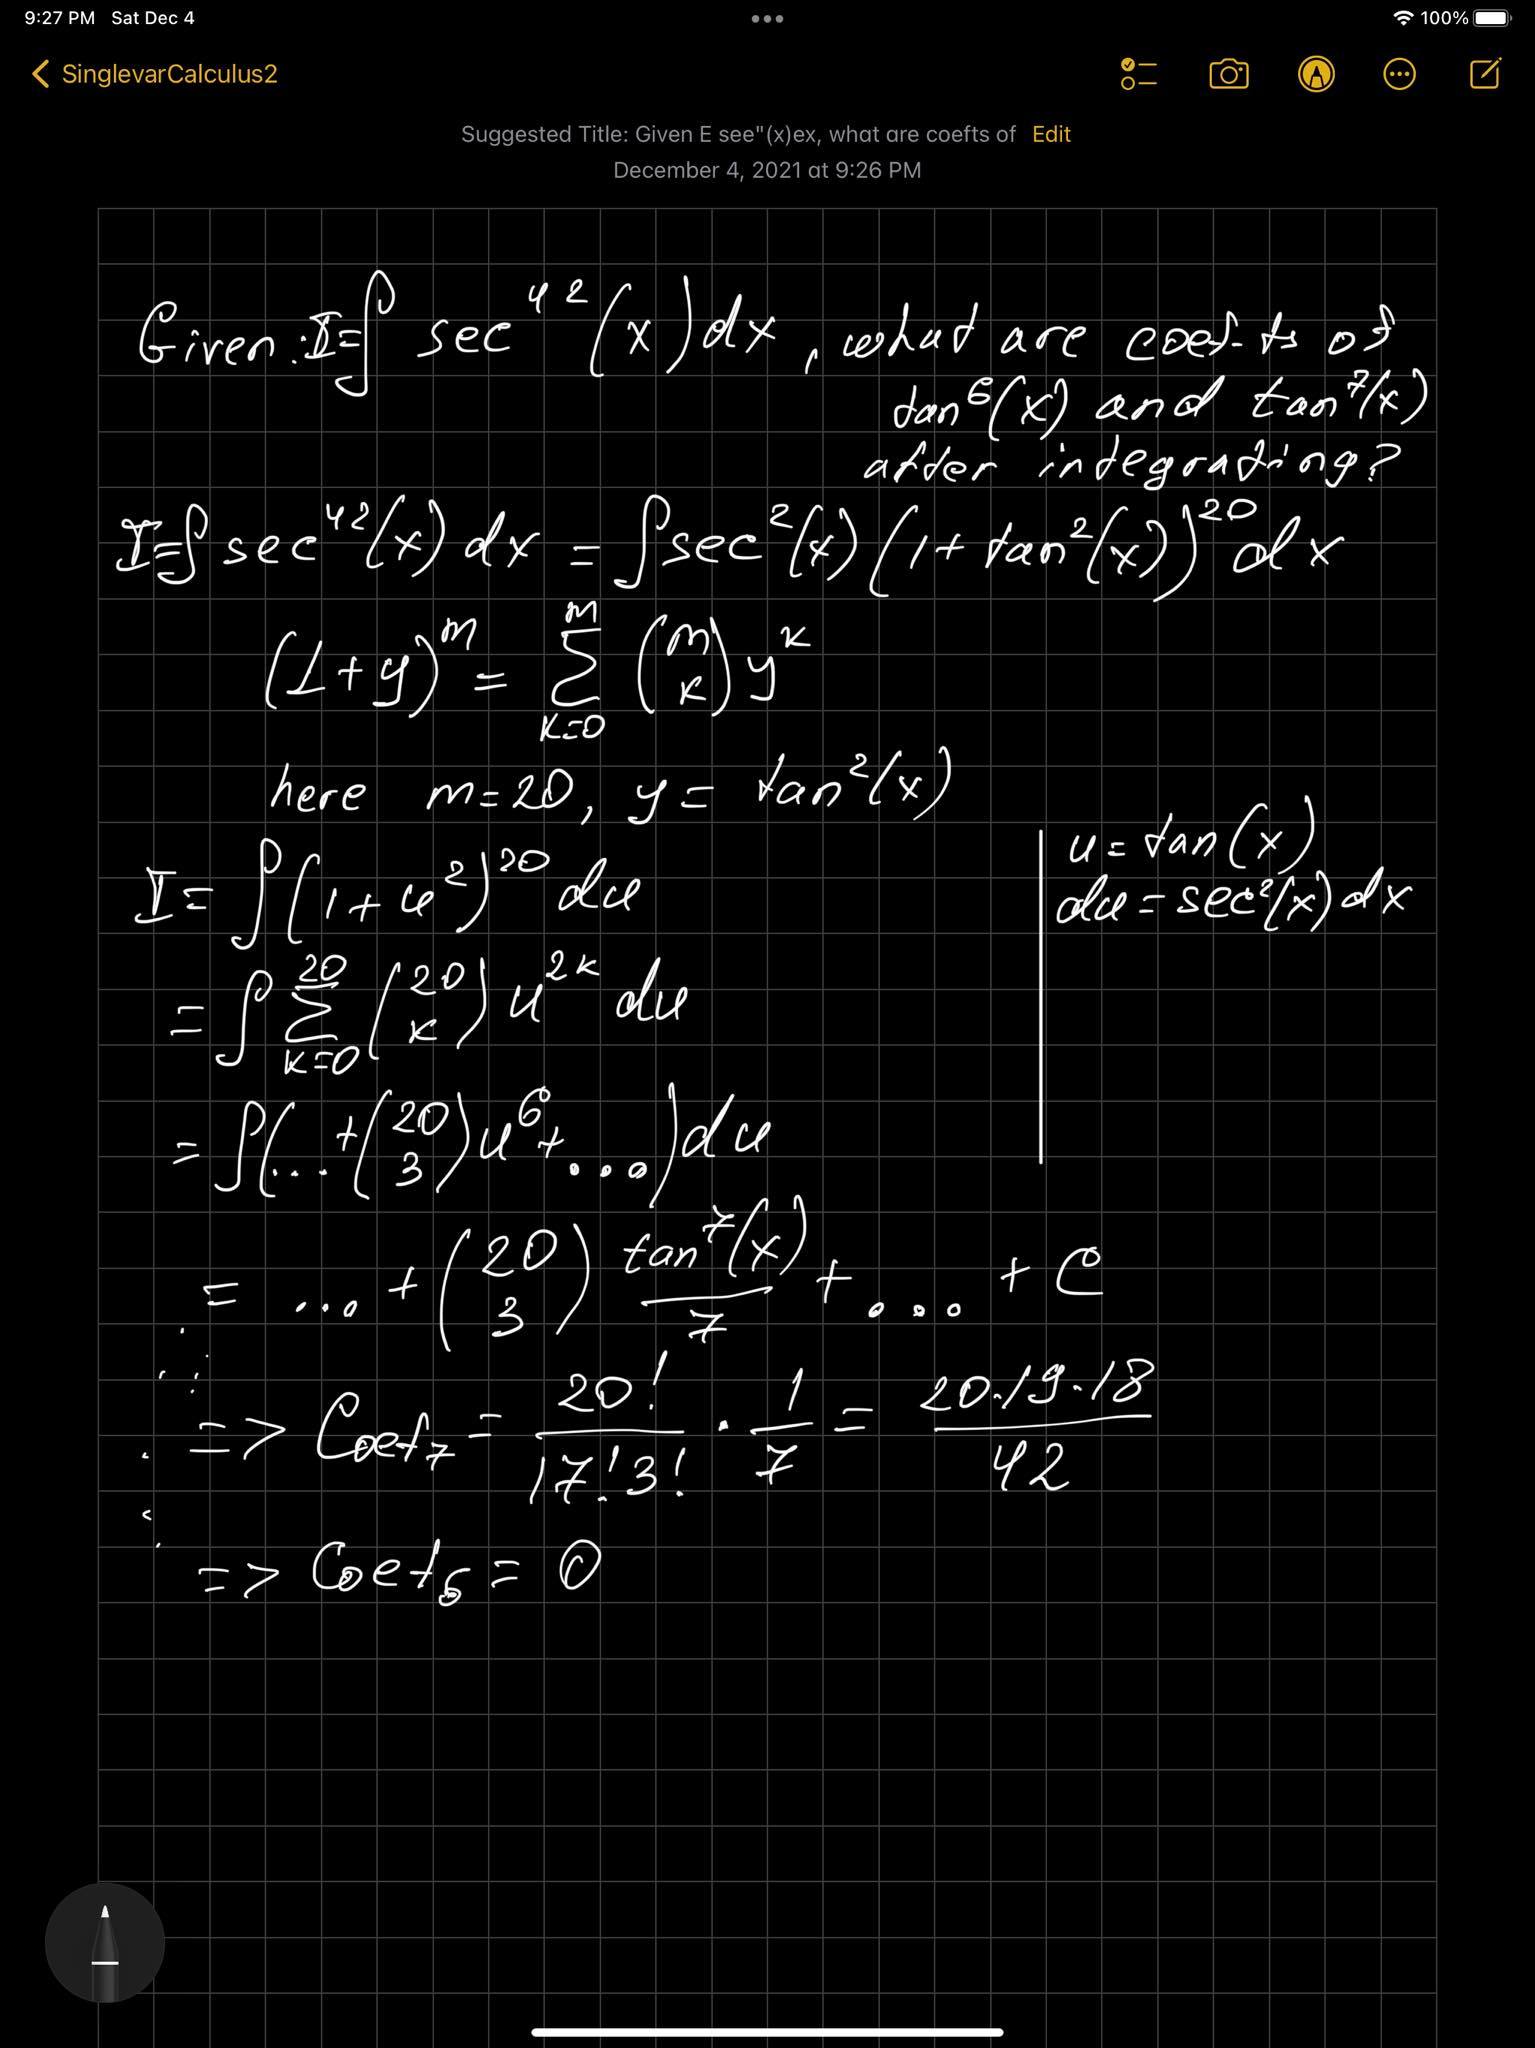 9:27 PM Sat Dec 4
100%
SinglevarCalculus2
Suggested Title: Given E see"(x)ex, what are coefts of Edit
December 4, 2021 at 9:26 PM
Given: I=∫ sec⁴²(x)dx, what are coef-ts of
tan⁶(x) and tan⁷(x)
after integrating?
I=∫ sec⁴²(x) dx = ∫sec²(x)(1+tan²(x))²⁰dx
(1+y)^m = ∑_{k=0}^{m} (m k) y^k
here m=20, y= tan²(x)
I= ∫(1+u²)²⁰ du
u= tan(x)
du=sec²(x)dx
=∫ ∑_{k=0}^{20} (20 k) u^{2k} du
= ∫(...+(20 3)u⁶+...)du
= ...+(20 3) tan⁷(x)/7 +... + C
=> Coef₇ = 20!/17!3! · 1/7 = 20·19·18/42
=> Coef₆ = 0